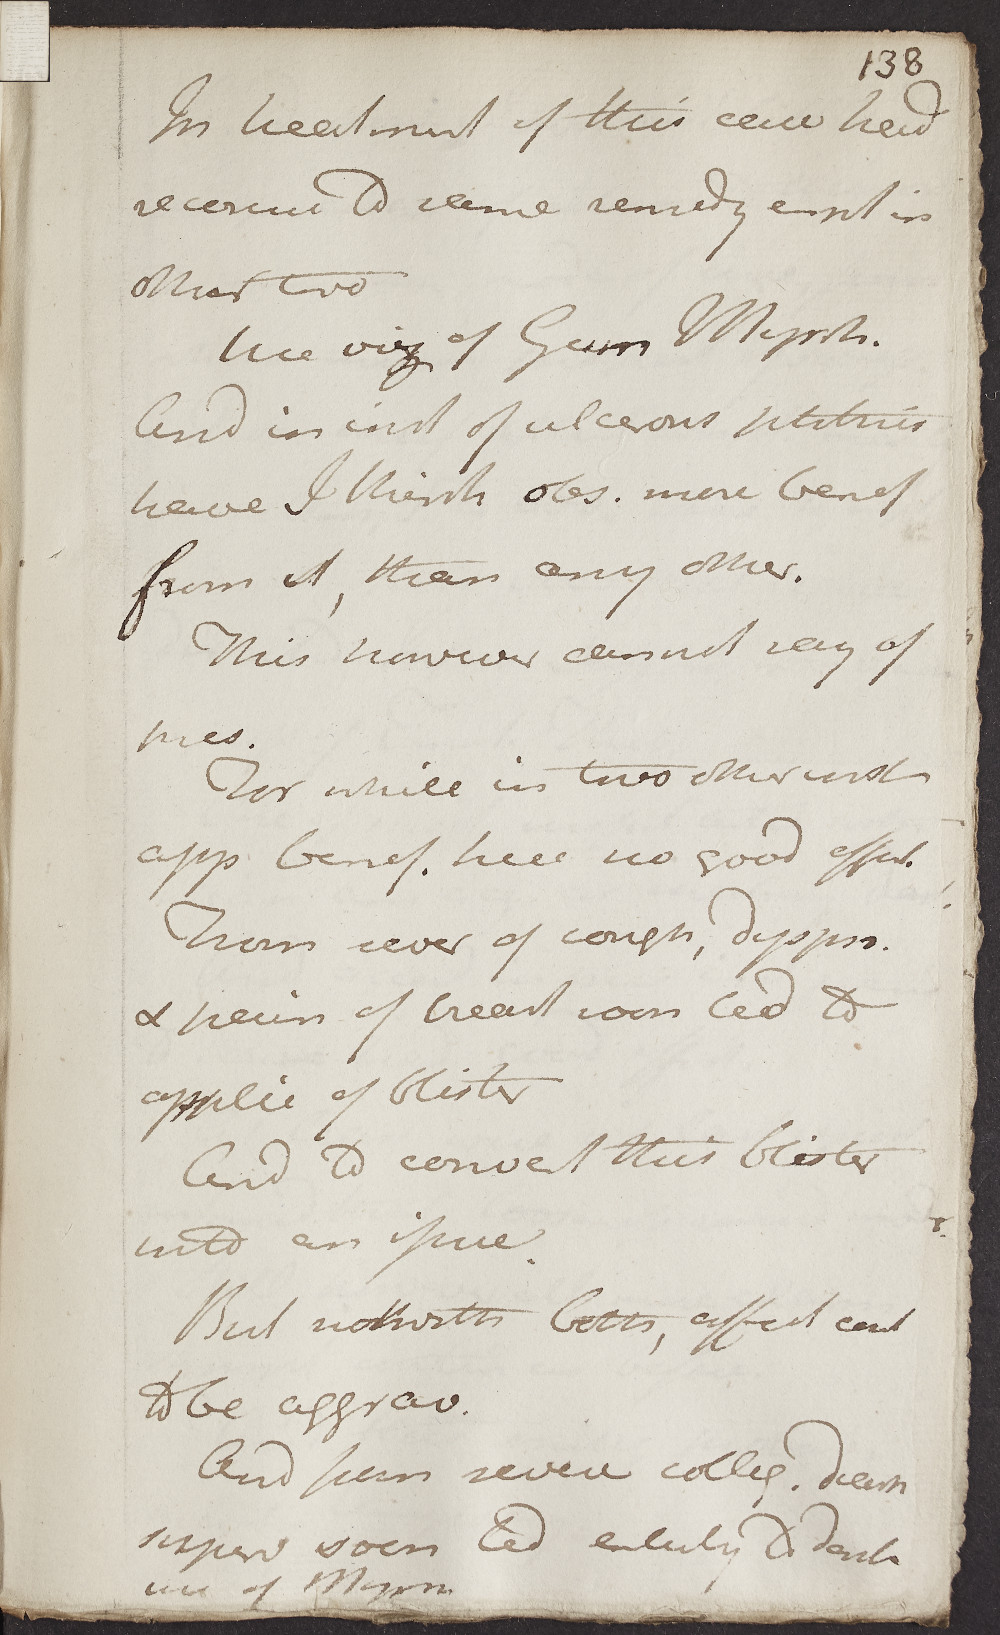 138
In treatment of this case had
recourse to same remedy empl in
other two
Use viz of Gum Myrrh.
And in inst of ulcerous phthisis
have I think obs. more benef
from it, than any other.
This however cannot say of
pres.
For while in two other inst
app benef. here no good effect.
From sever of cough, dyspn.
& pain of breast soon led to
applic of blister
And to convert this blister
into an issue.
But notwith both, affect cont
to be aggrav.
And severe colliq. diarrh
superv soon led entirely to
use of Myrrh